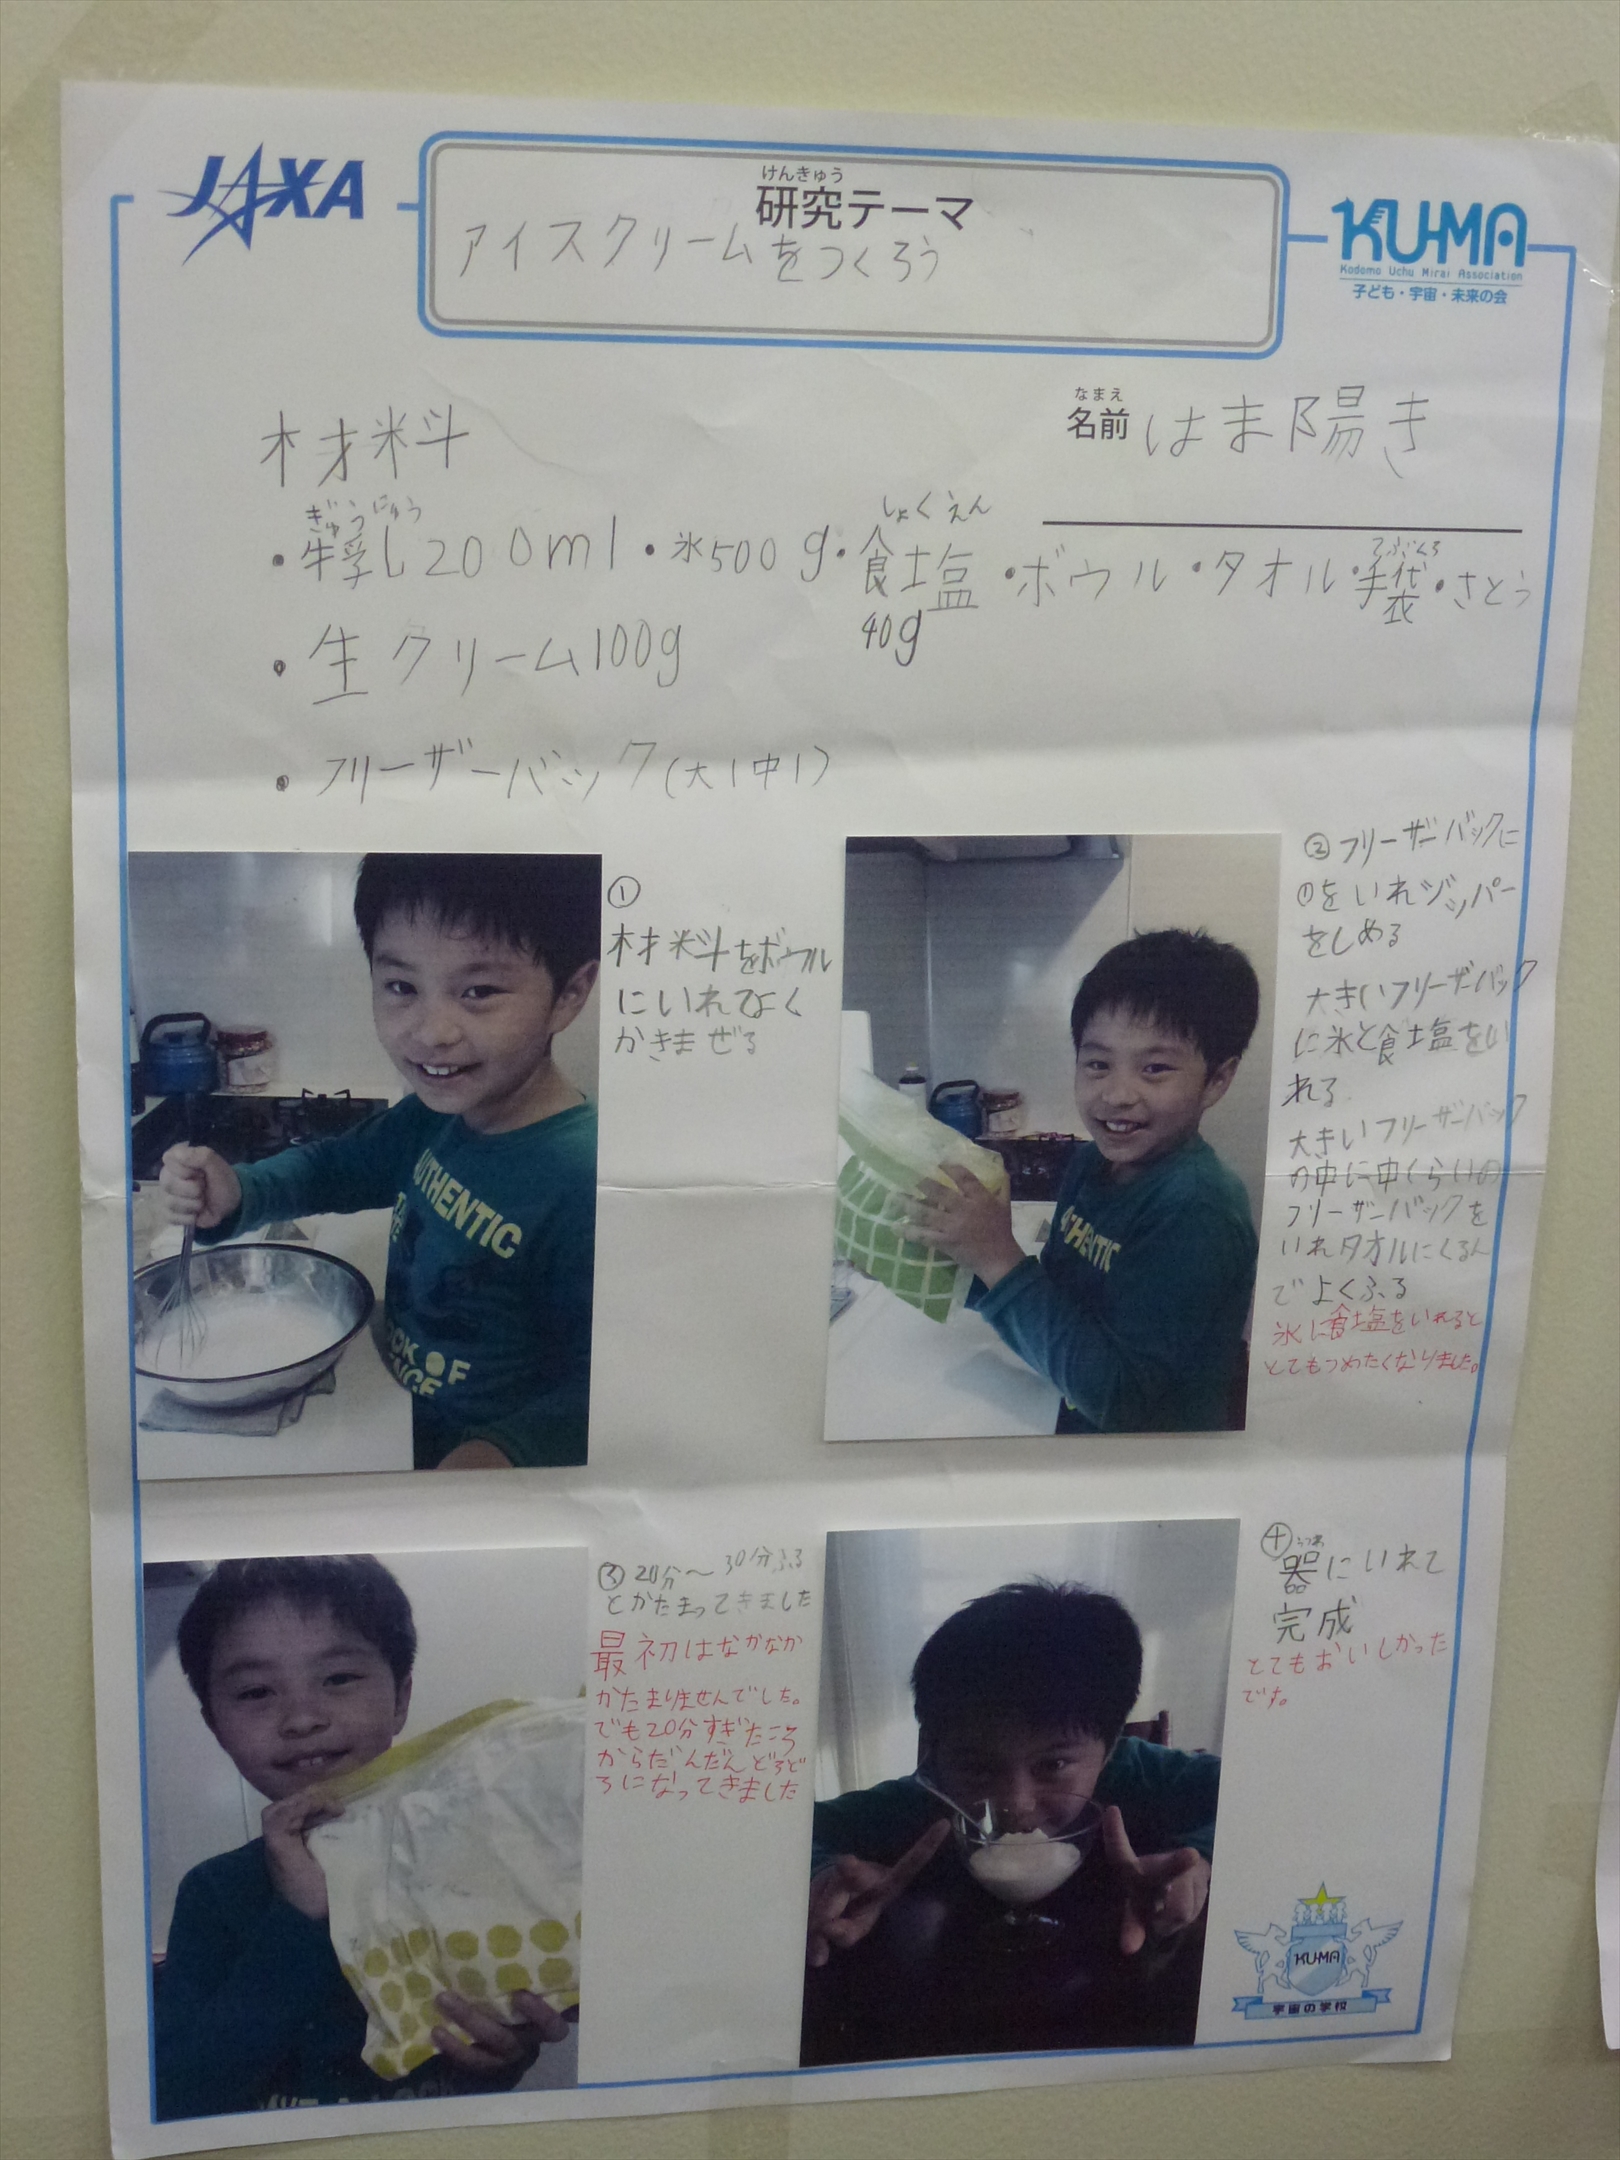 JAXA
けんきゅう
研究テーマ
アイスクリームをつくろう
KUMA
Kodomo Uchu Mirai Association
子ども・宇宙・未来の会
なまえ
名前 はま陽き
材料
ぎゅうにゅう しょくえん てぶくろ
・牛乳し200ml・氷500g・食塩・ボウル・タオル・手袋・さとう
40g
・生クリーム100g
・フリーザーバック(大1中1)
①
材料をボウル
にいれてよく
かきまぜる
AUTHENTIC
②フリーザーバックに
①をいれジッパー
をしめる
大きいフリーザーバック
に氷と食塩をい
れる.
大きいフリーザーバック
の中に中くらいの
フリーザーバックを
いれタオルにくるん
でよくふる
氷に食塩をいれると
とてもつめたくなりました。
③20分〜30分ふる
とかたまってきました
最初はなかなか
かたまりませんでした。
でも20分すぎたころ
からだんだんどろど
ろになってきました
④ うつわ
器にいれて
完成
とてもおいしかった
です。
KUMA
宇宙の学校